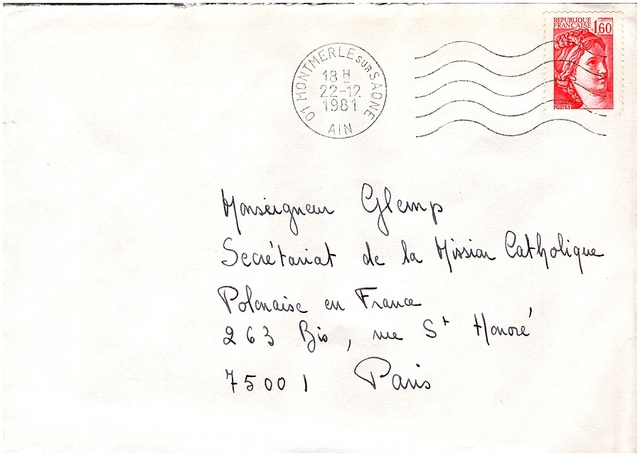 REPUBLIQUE
FRANÇAISE 1,60
01 MONTMERLE SUR SAONE
18 H
22-12
1981
AIN
Monseigneur Glemp
Secrétariat de la Mission Catholique
Polonaise en France
263 Bis, rue St Honoré
75001 Paris